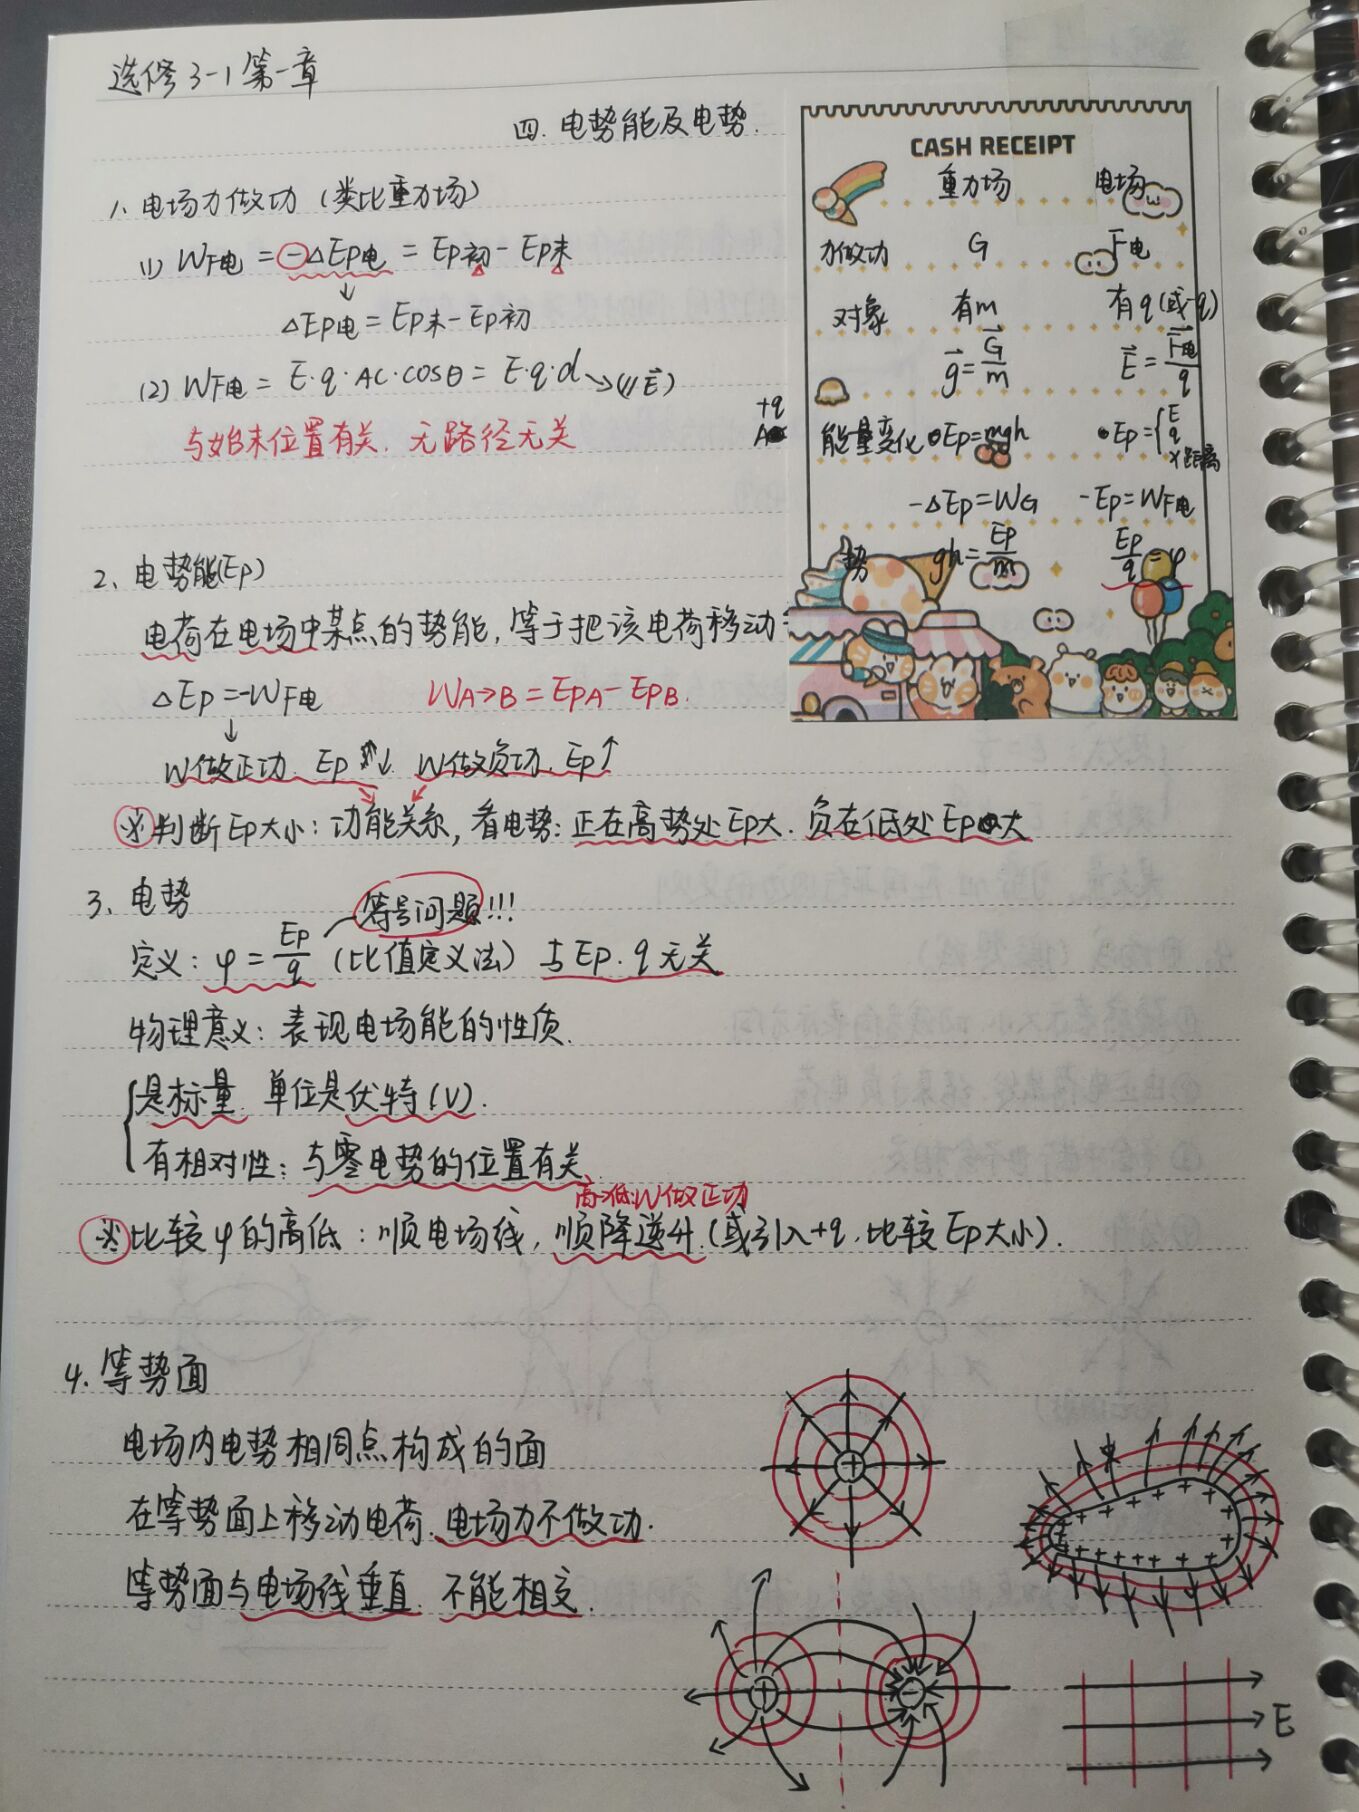 选修3-1第一章
四.电势能及电势.
1、电场力做功（类比重力场）
(1) WF电 = -△Ep电 = Ep初 - Ep末
↓
△Ep电 = Ep末 - Ep初
(2) WF电 = E·q·AC·cosθ = E·q·d → (∥E)
与始末位置有关.无路径无关
+q
A
CASH RECEIPT
重力场 电场
力做功 G F电
对象 有m 有q(或-q)
g = G/m E = F电/q
能量变化 •Ep=mgh •Ep={E q x距离
-△Ep=WG -Ep=WF电
势 gh=Ep/m Ep/q=φ
2、电势能(Ep)
电荷在电场中某点的势能,等于把该电荷移动
△Ep=-WF电 WA→B = EPA - EPB.
↓
W做正功.Ep↓. W做负功.Ep↑
※判断Ep大小:功能关系,看电势:正在高势处Ep大.负在低处Ep大
3、电势
等号问题!!!
定义:φ=Ep/q (比值定义法) 与Ep.q无关
物理意义:表现电场能的性质.
{是标量.单位是伏特(V).
有相对性:与零电势的位置有关
高→低:W做正功
※比较φ的高低:顺电场线,顺降逆升.(或引入+q,比较Ep大小).
4.等势面
电场内电势相同点构成的面
在等势面上移动电荷.电场力不做功.
等势面与电场线垂直.不能相交.
E